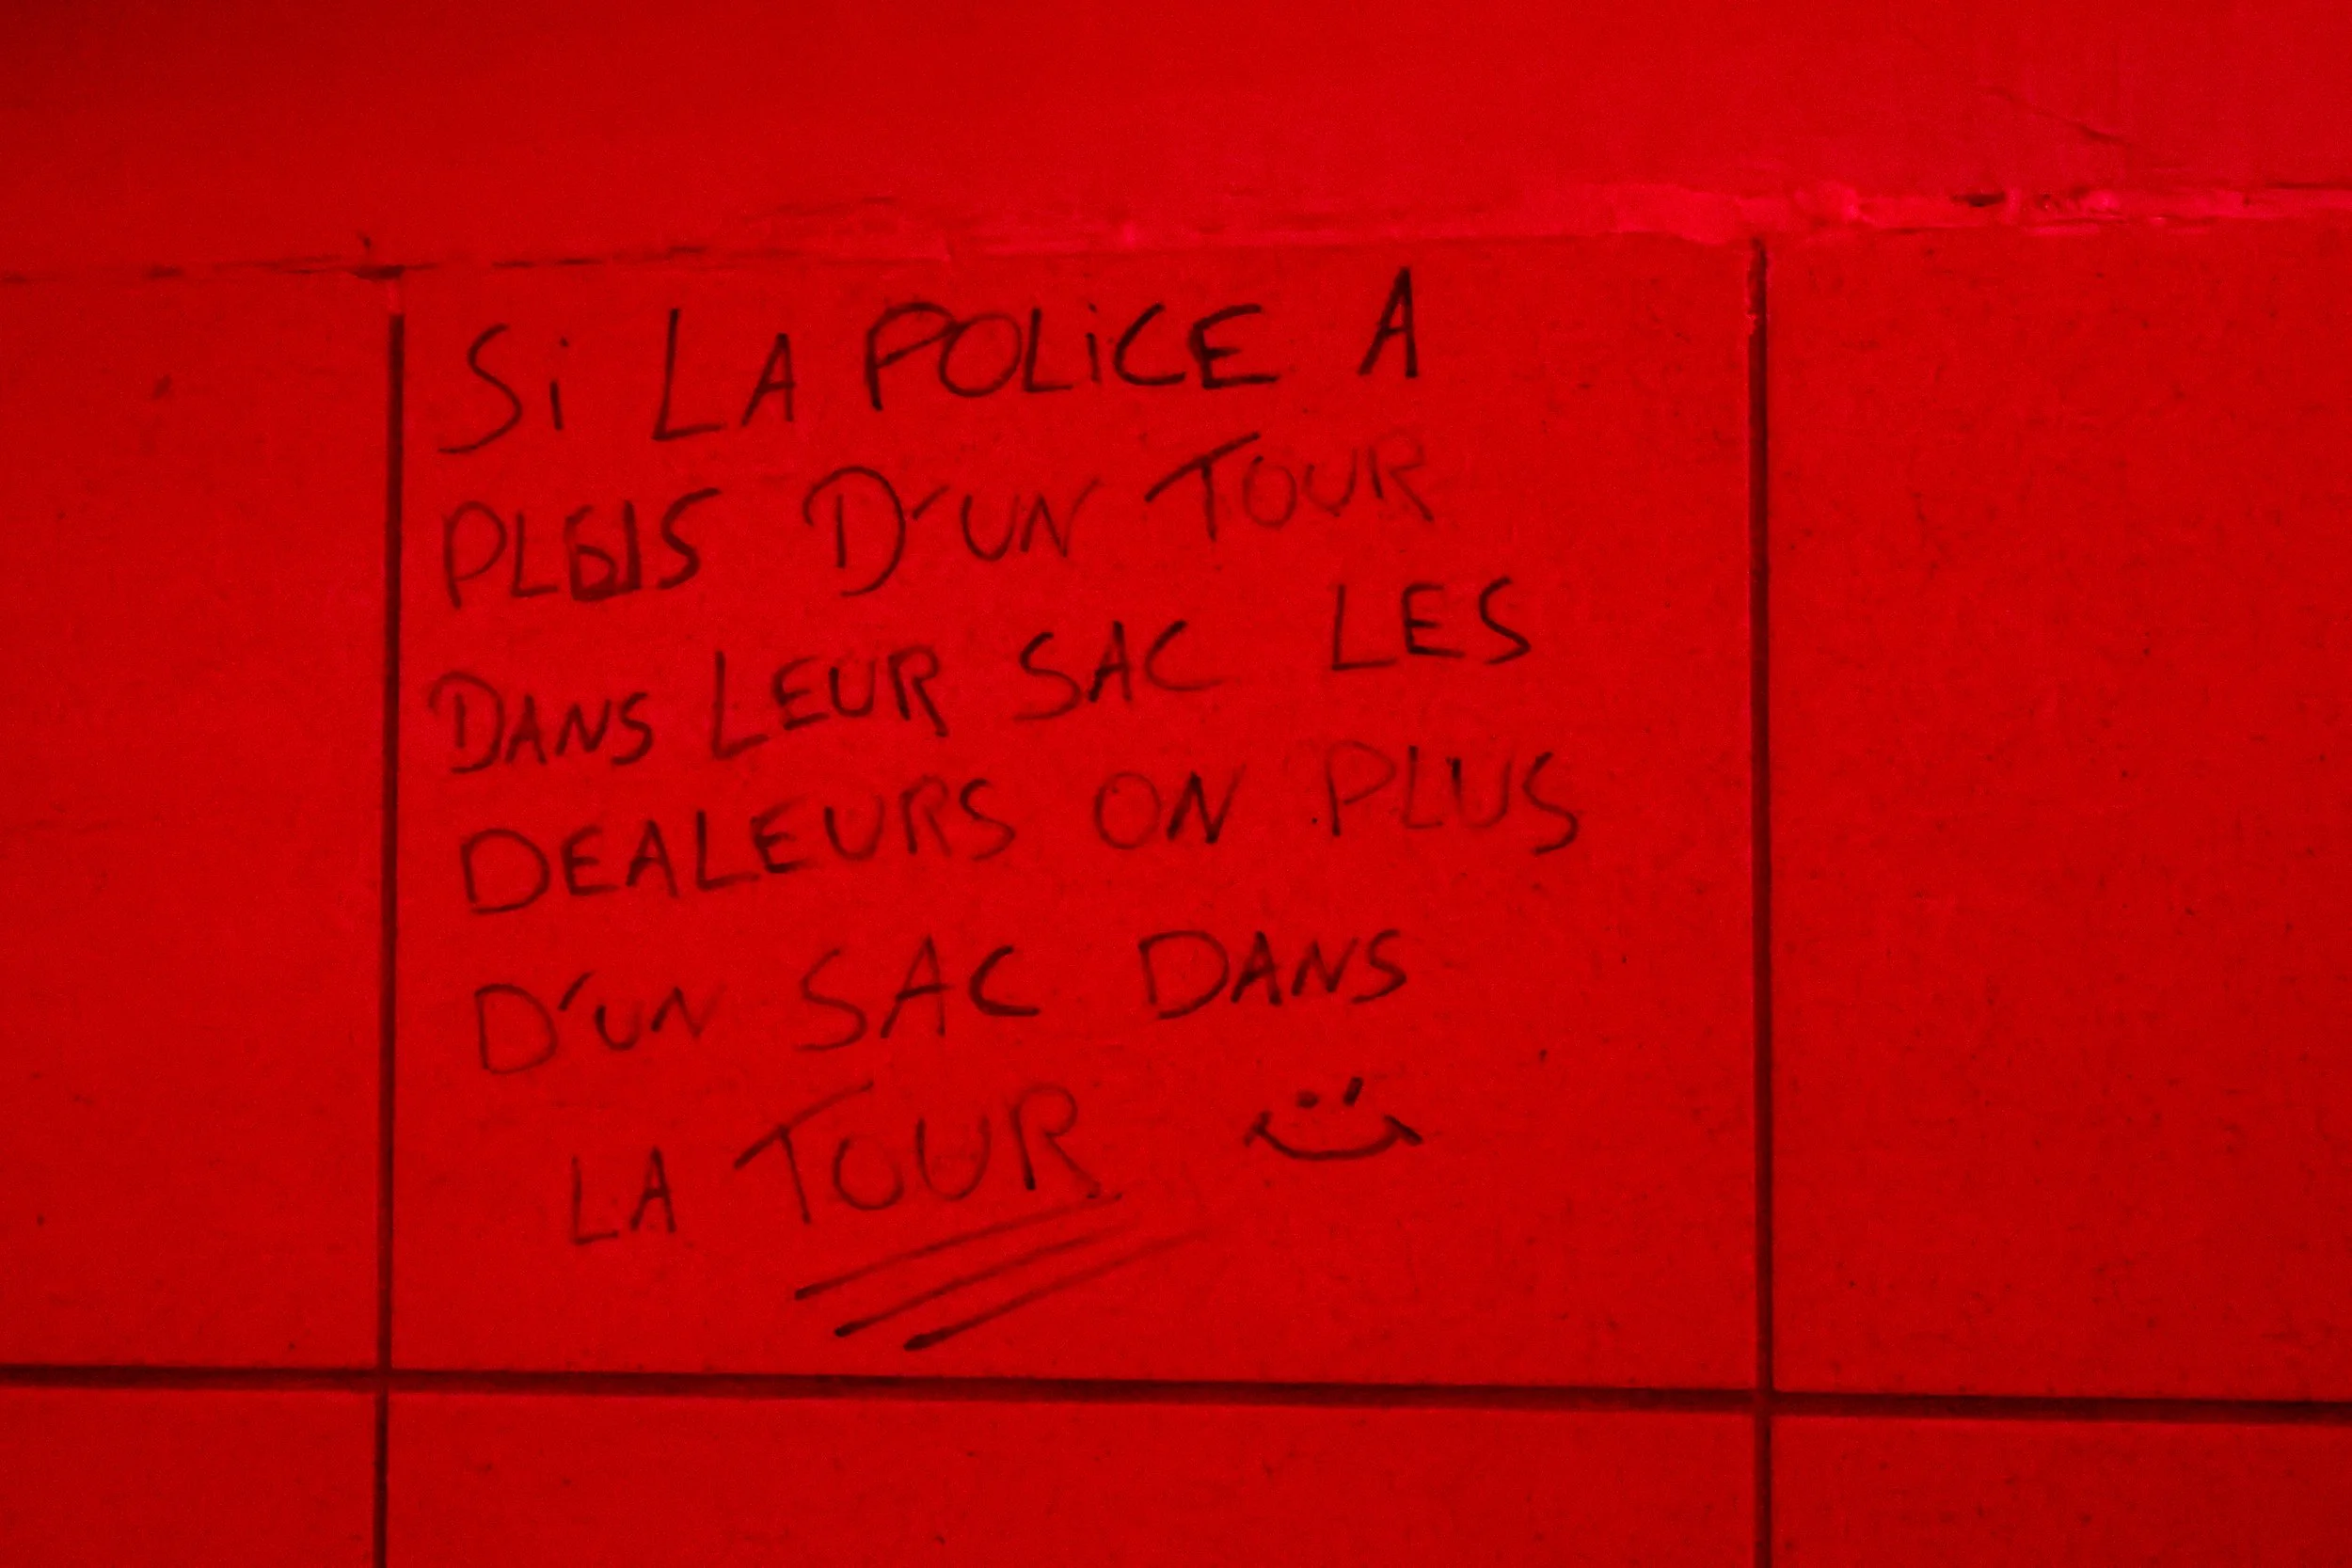 Si LA POLiCE A
PLEIS D'UN TOUR
DANS LEUR SAC LES
DEALEURS ON PLUS
D'UN SAC DANS
LA TOUR